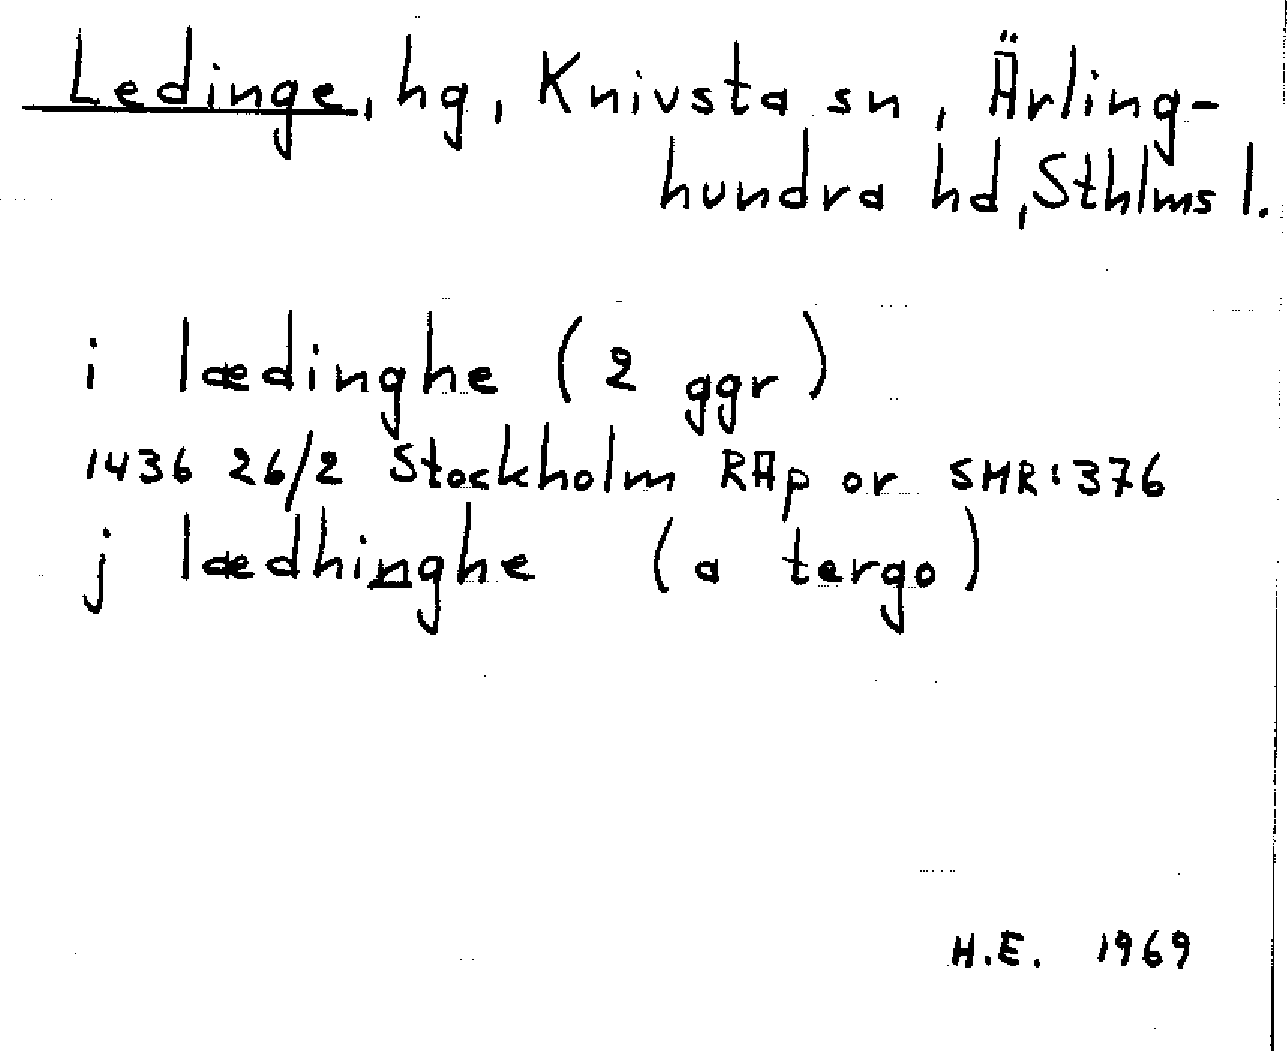 Ledinge, hg, Knivsta sn, Ärling-
hundra hd, Sthlms l.
i lædinghe (2 ggr)
1436 26/2 Stockholm RAp or SMR: 376
j lædhinghe (a tergo)
H.E. 1969